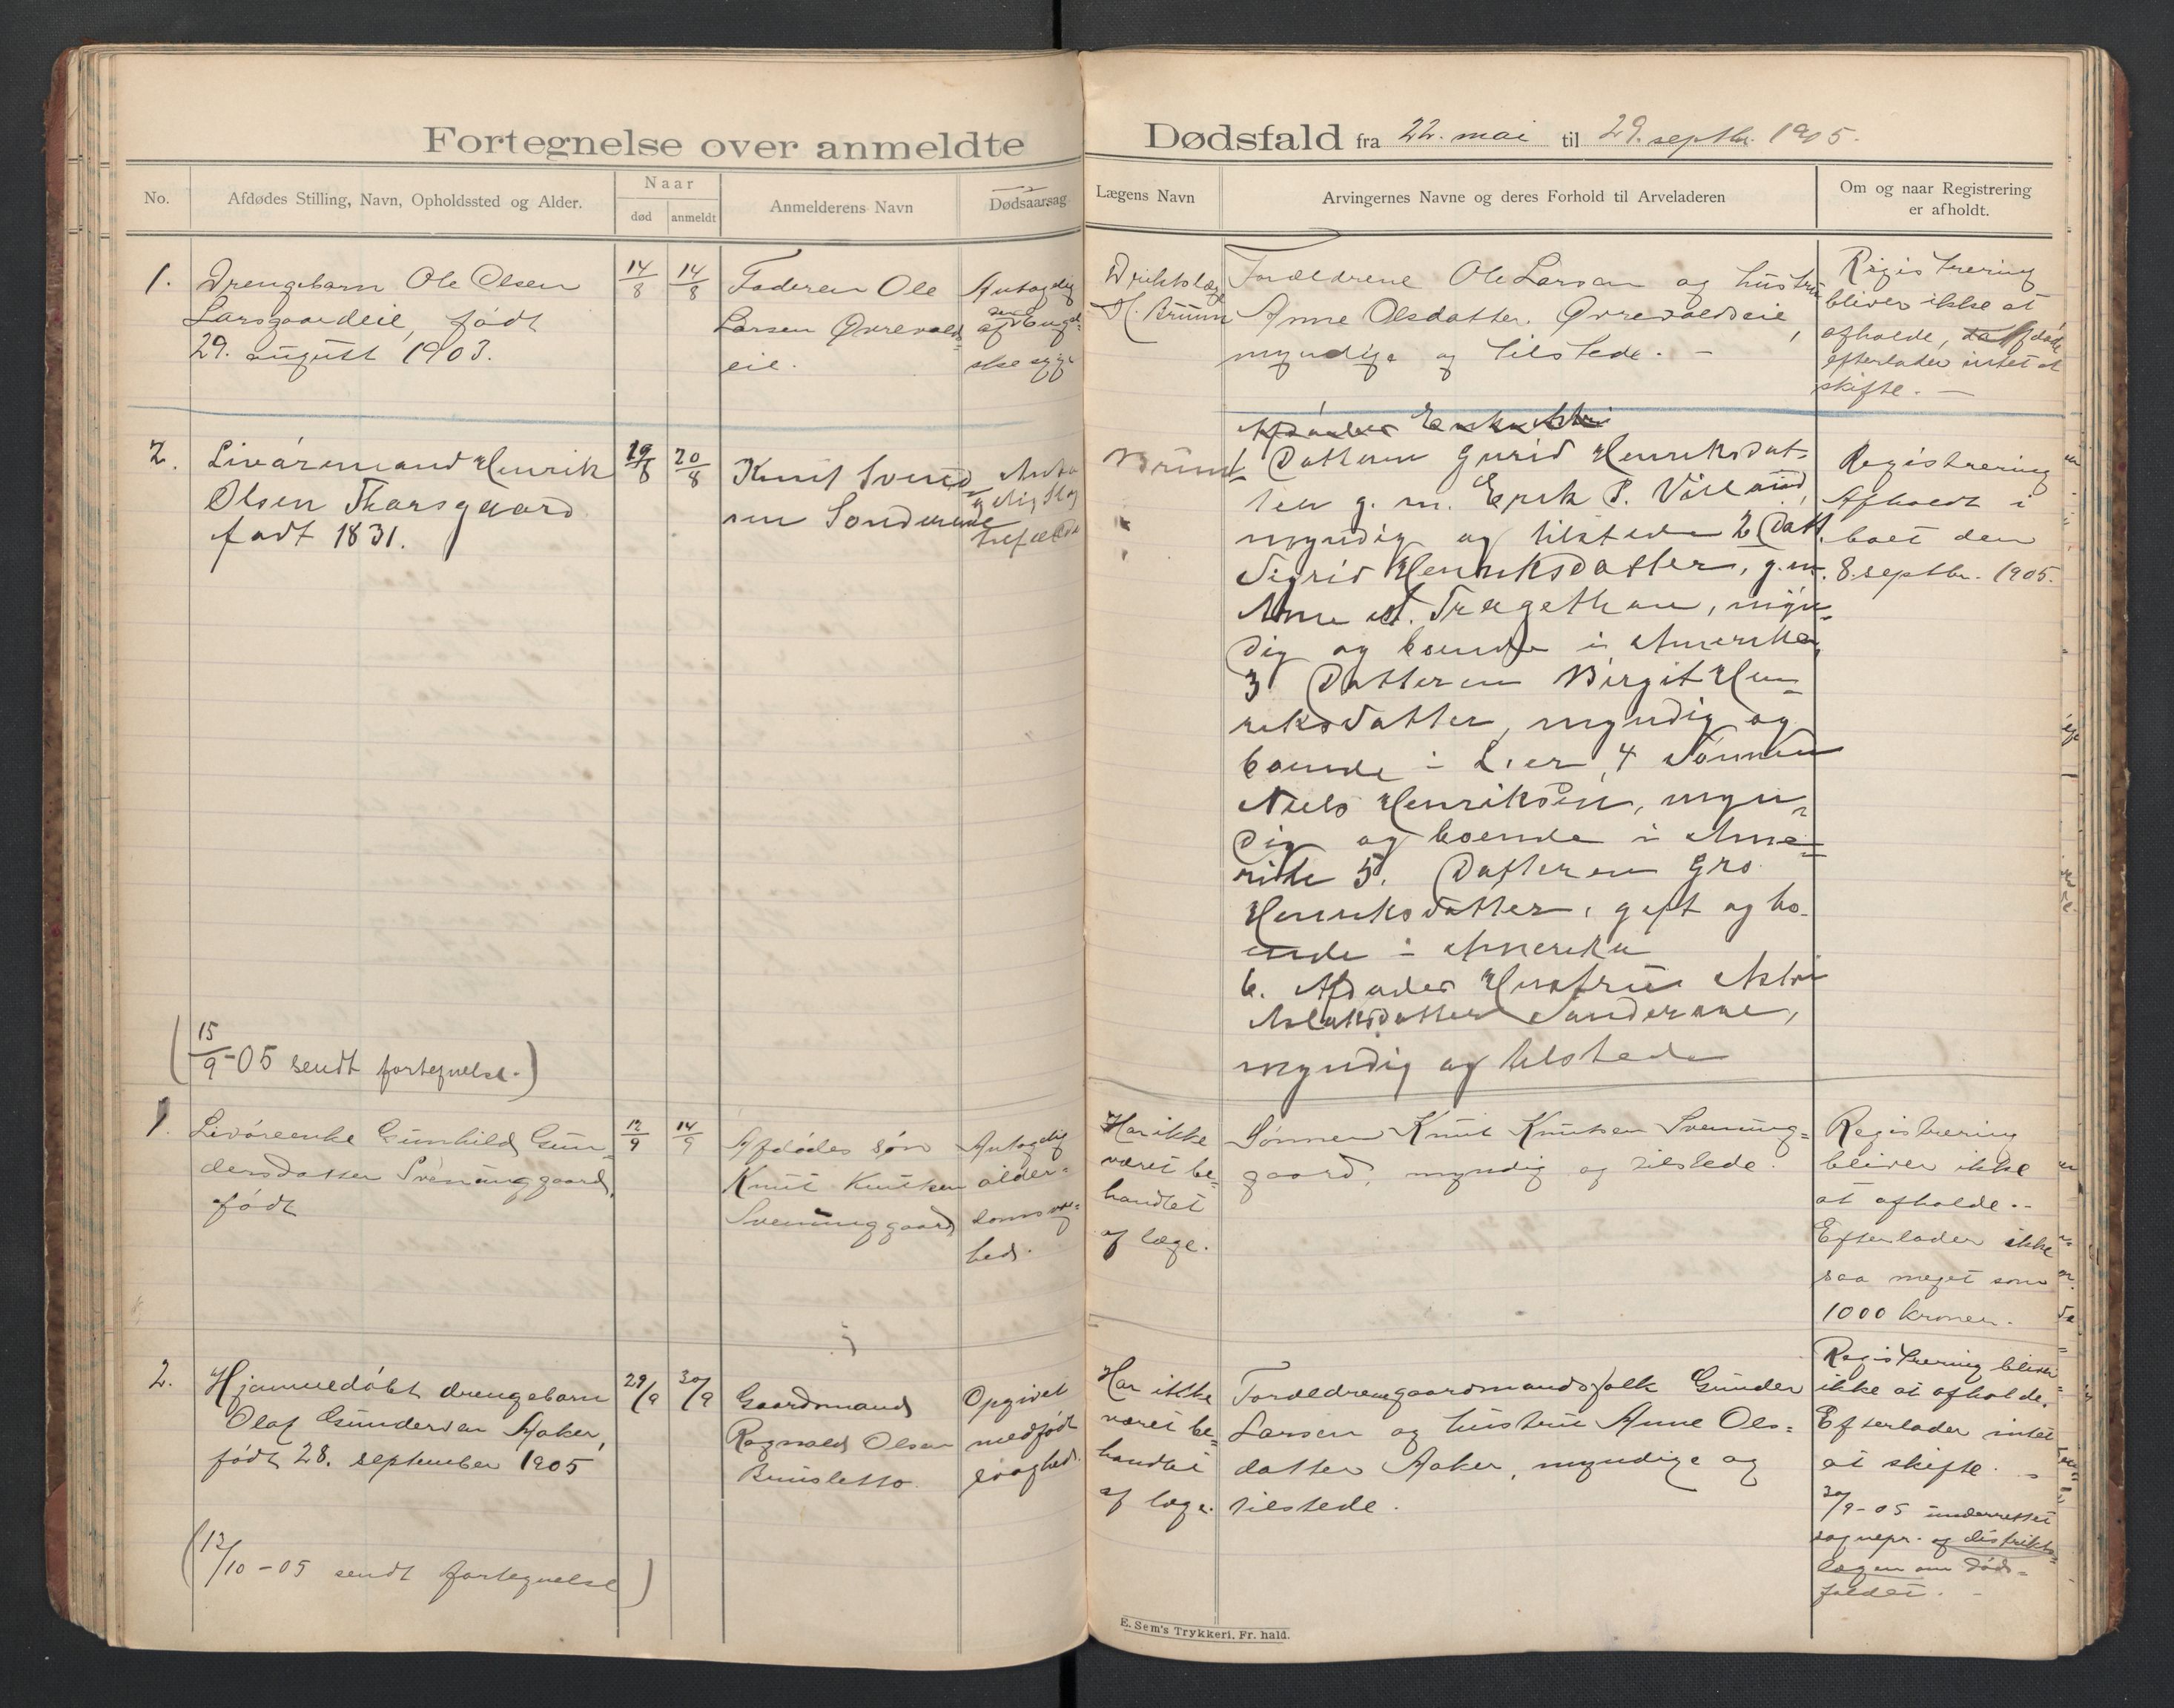 Fortegnelse over anmeldte
Dødsfald fra 22. mai til 29. septbr. 1905.
No.
Afdødes Stilling, Navn, Opholdssted og Alder.
Naar
død
anmeldt
Anmelderens Navn
Dødsaarsag
Lægens Navn
Arvingernes Navne og deres Forhold til Arveladeren
Om og naar Registrering
er afholdt.
1.
Drengebarn Ole Olsen
Larsgaardeie, født
29. august 1903.
14/8
14/8
Faderen Ole
Larsen Øvrevolds=
eie.
Antagelig
af Engel=
ske syge
Distriktslæge
H. Bruun
Forældrene Ole Larsen og hustru
Anne Olsdatter Øvrevoldseie,
myndige og tilstede. -
Registrering
bliver ikke at
afholde, da afdøde
efterlader intet at
skifte. -
2.
Livøremand Henrik
Olsen Tharsgaard
født 1831.
19/8
20/8
Knut Svend
sen Sonderaae
Anta
gelig Slag
tilfælde
Bruun
Afdødes Enke
Datteren Gurid Henriksdat-
ter g. m. Erik P. Villand,
myndig og tilstede 2 Datt.
Sigrid Henriksdatter, g. m.
Arne A. Trægethon, myn=
dig og boende i Amerika,
3 Datteren Birgit Hen=
riksdatter, myndig og
boende i Lier, 4 Sønnen
Niels Henriksen, myn=
dig og boende i Ame=
rika 5. Datteren Gro
Henriksdatter, gift og bo-
ende i Amerika
6. Afdødes Hustru Astri
Aslaksdatter Sønderaae,
myndig og tilstede
Registrering
Afholdt i
boet den
8. septbr. 1905.
(15/9-05 sendt fortegnelse.)
1.
Livøreenke Gunhild Gun=
dersdatter Svenunggaard,
født
12/9
14/9
Afdødes søn
Knut Knutsen
Svenunggaard
Antagelig
alder=
domssvag=
hed.
Har ikke
været be=
handlet
af læge.
Sønnen Knut Knutsen Svenung=
gaard, myndig og tilstede.
Registrering
bliver ikke
at afholde.-
Efterlader ikke
saa meget som
1000 kroner.
2.
Hjemmedøbt drengebarn
Olaf Gundersen Aaker,
født 28. september 1905
29/9
30/9
Gaardmand
Ragnvald Olsen
Brunsletto
Opgivet
medfødt
svaghed.
Har ikke
været be=
handlet
af læge.
Forældrene gaardmandsfolk Gunder
Larsen og hustru Anne Ols=
datter Aaker, myndige og
tilstede.
Registrering bliver
ikke at afholde.
Efterlader intet
at skifte. -
30/9-05 underrettet
sognepr. og distrikts=
lægen om døds=
faldet. -
(12/10-05 sendt fortegnelse)
E. Sem's Trykkeri, Fr.hald.